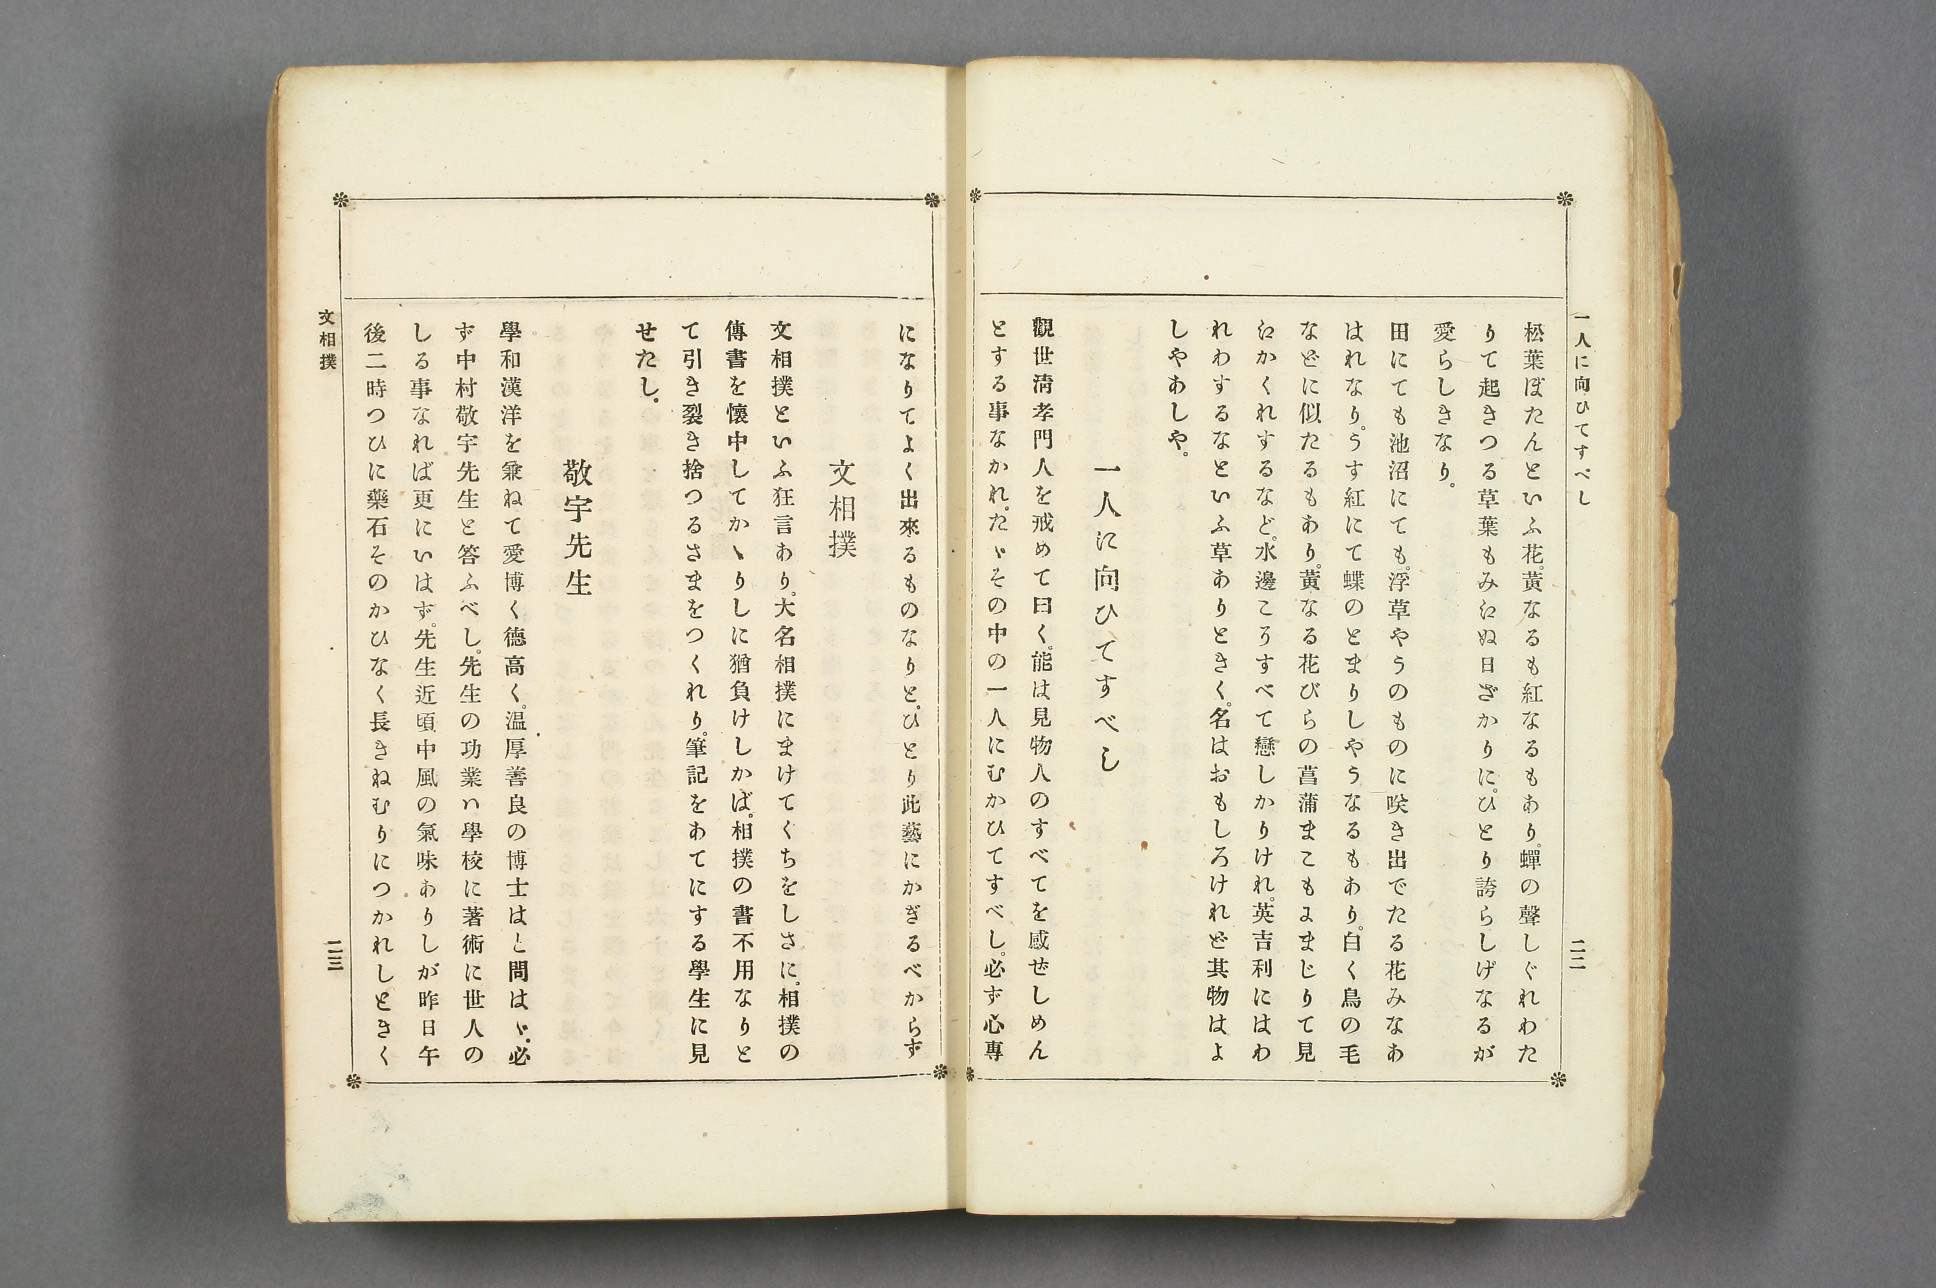 一人に向ひてすべし
二二
松葉ぼたんといふ花。黄なるも紅なるもあり。蟬の聲しぐれわた
りて起きつる草葉もみえぬ日ざかりに。ひとり誇らしげなるが
愛らしきなり。
田にても池沼にても。浮草やうのものに咲き出でたる花みなあ
はれなり。うす紅にて蝶のとまりしやうなるもあり。白く鳥の毛
などに似たるもあり。黄なる花びらの菖蒲まこもにまじりて見
えかくれするなど。水邊こうすべて戀しかりけれ。英吉利にはわ
れわするなといふ草ありときく。名はおもしろけれど其物はよ
しやあしや。
一人に向ひてすべし
觀世淸孝門人を戒めて曰く。能は見物人のすべてを感ぜしめん
とする事なかれ。たゞその中の一人にむかひてすべし。必ず心專
になりてよく出來るものなりと。ひとり此藝にかぎるべからず
文相撲
文相撲といふ狂言あり。大名相撲にまけてくちをしさに。相撲の
傳書を懷中してかゝりしに猶負けしかば。相撲の書不用なりと
て引き裂き捨つるさまをつくれり。筆記をあてにする學生に見
せたし。
敬宇先生
學和漢洋を兼ねて愛博く德高く。温厚善良の博士はと問はゞ。必
ず中村敬宇先生と答ふべし。先生の功業ハ學校に著術に世人の
しる事なれば更にいはず。先生近頃中風の氣味ありしが昨日午
後二時つひに藥石そのかひなく長きねむりにつかれしときく
文相撲
二三